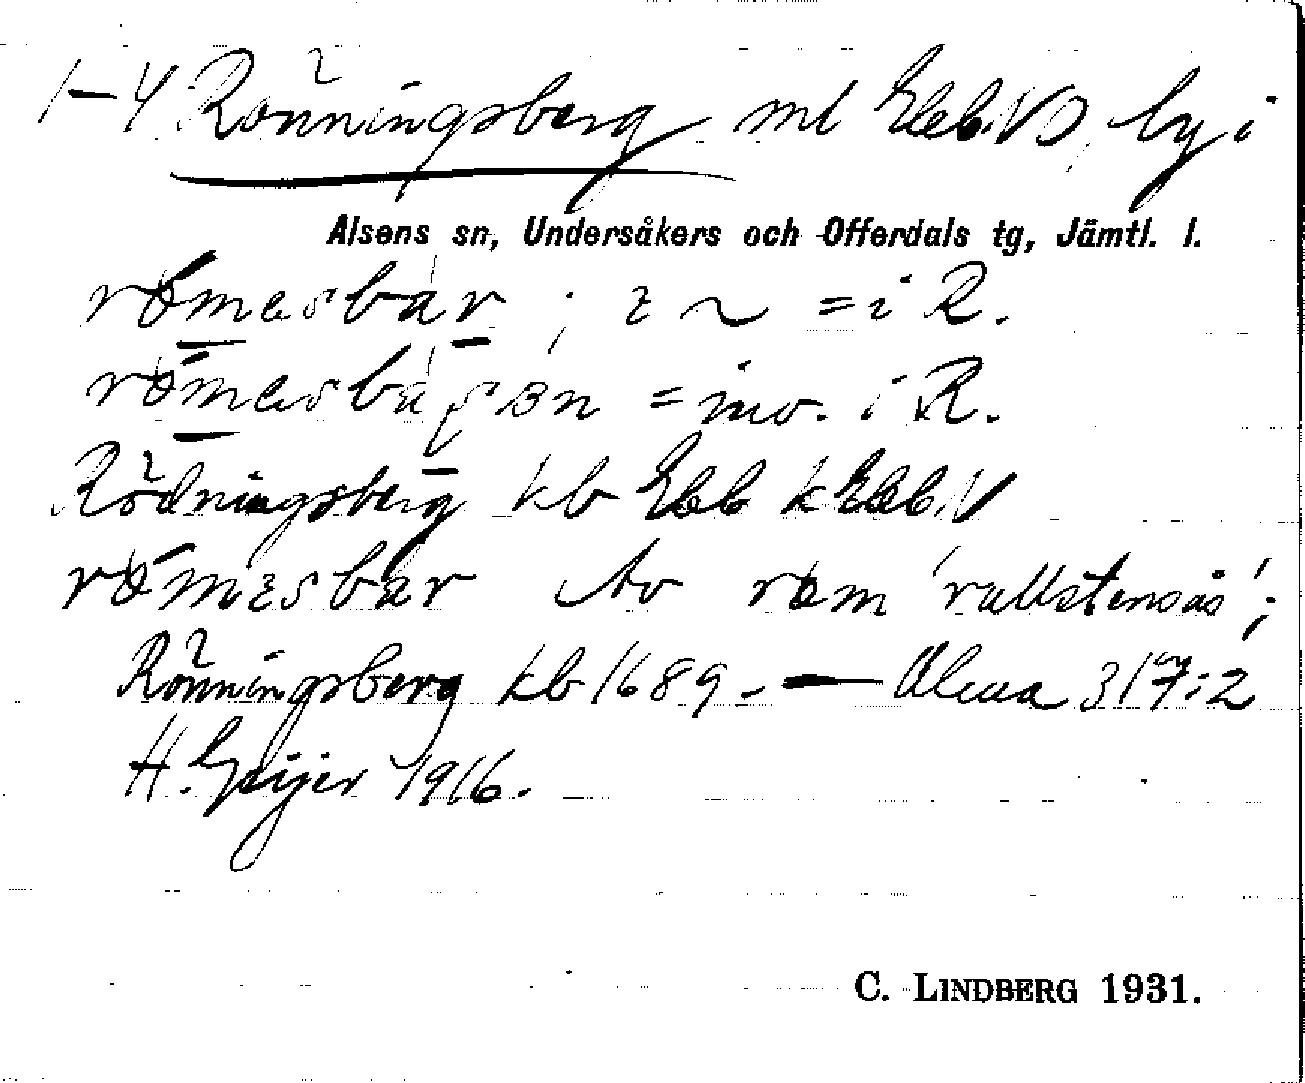 1-4 Rönningsberg ml Eleb.VD, by i
Alsens sn, Undersåkers och Offerdals tg, Jämtl. l.
römesbar ; i ~ = i R.
= inv. i R.
Rödningsberg kb Eleb k Eleb.V
römesbar Av röm 'rullstensås';
Rönningsberg kb 1689. — 317:2
H. Geijer 1916.
C. LINDBERG 1931.